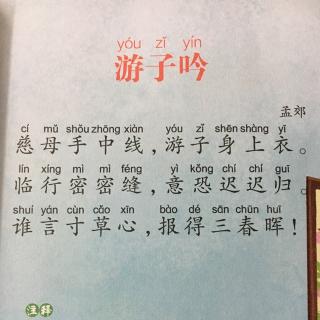 yóu zǐ yín
游子吟
孟郊
cí mǔ shǒu zhōng xiàn yóu zǐ shēn shàng yī
慈母手中线，游子身上衣。
lín xíng mì mì féng yì kǒng chí chí guī
临行密密缝，意恐迟迟归。
shuí yán cùn cǎo xīn bào dé sān chūn huī
谁言寸草心，报得三春晖！
注释